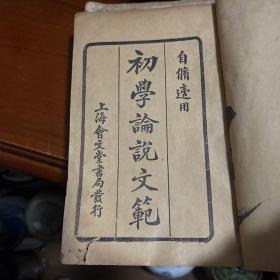 自脩適用
初學論說文範
上海會文堂書局發行